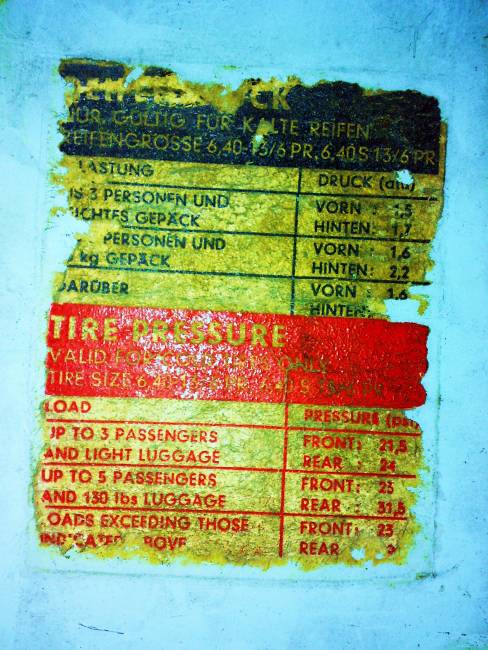 CK
NUR GÜLTIG FÜR KALTE REIFEN
REIFENGRÖSSE 6,40-13/6 PR, 6,40 S 13/6 PR
LASTUNG DRUCK (atü)
IS 3 PERSONEN UND VORN : 1,5
ICHTES GEPÄCK HINTEN: 1,7
PERSONEN UND VORN : 1,6
kg GEPÄCK HINTEN: 2,2
DARÜBER VORN : 1,6
HINTEN:
TIRE PRESSURE
VALID FOR ONLY
TIRE SIZE 6,40 6,40 S
LOAD PRESSURE (psi)
UP TO 3 PASSENGERS FRONT: 21,5
AND LIGHT LUGGAGE REAR : 24
UP TO 5 PASSENGERS FRONT: 23
AND 130 lbs LUGGAGE REAR : 31,5
LOADS EXCEEDING THOSE FRONT: 23
INDICATED BOVE REAR